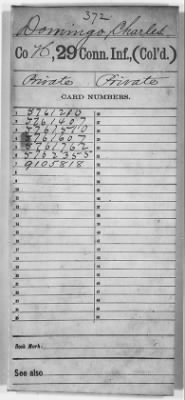 372
Domingo, Charles
Co. H, 29 Conn. Inf., (Col'd.)
Private Private
CARD NUMBERS.
1 3761210
2 3761407
3 3761510
4 3761607
5 3761762
6 5162355
7 9105818
Book Mark:
See also